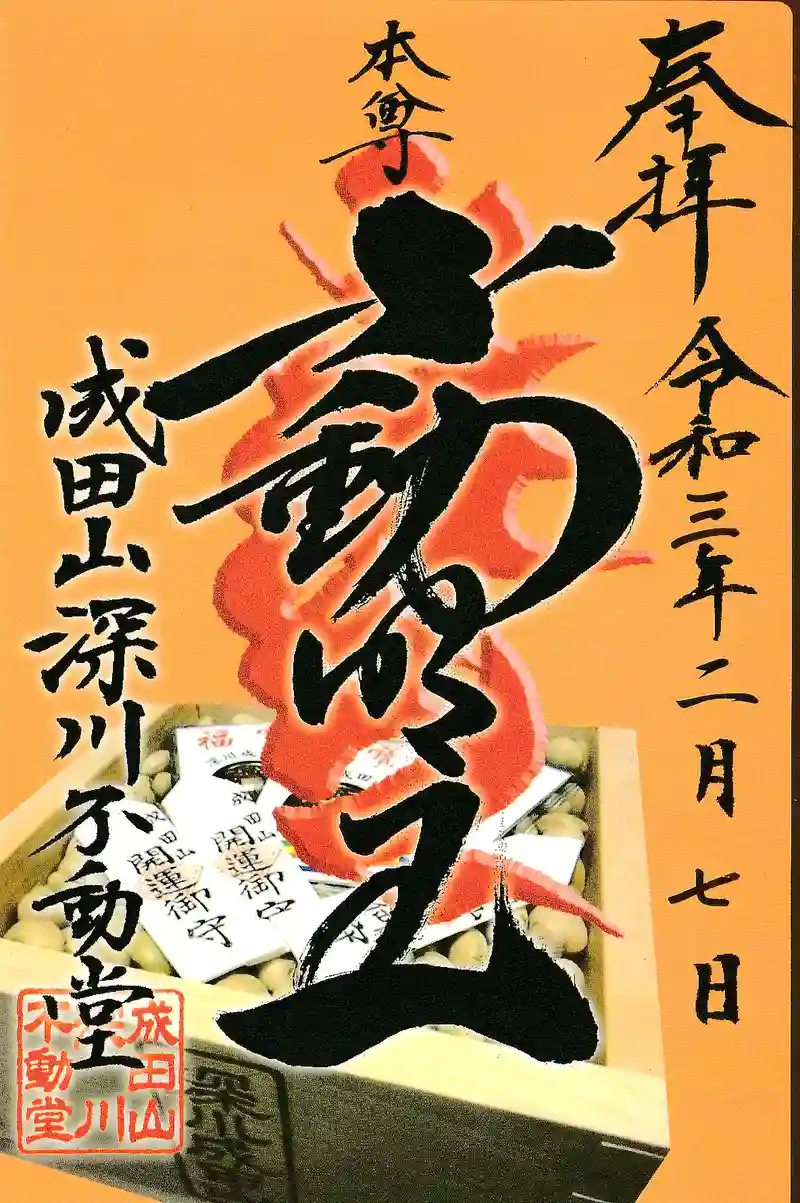 奉拝
令和三年二月七日
本尊
不動明王
成田山深川不動堂
成田山
深川
不動堂
福
深川成田
成田山
開運御守
成田山
開運御守
守
深川成田